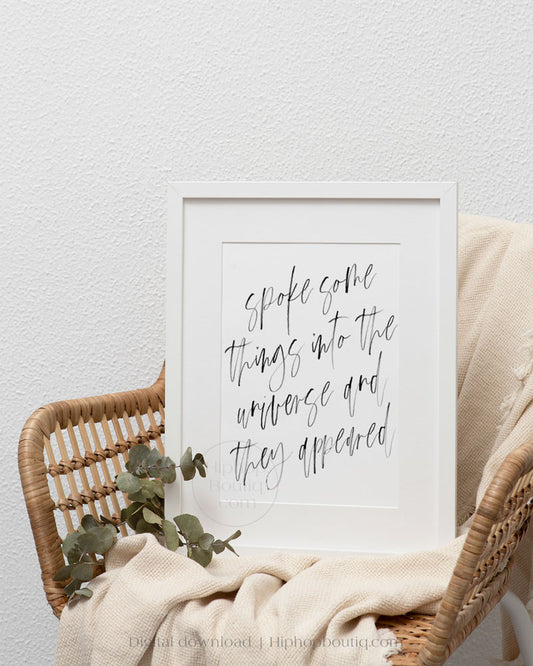 spoke some
things into the
universe and
they appeared
Hiphop
Boutiq
.com
Digital download | Hiphopboutiq.com